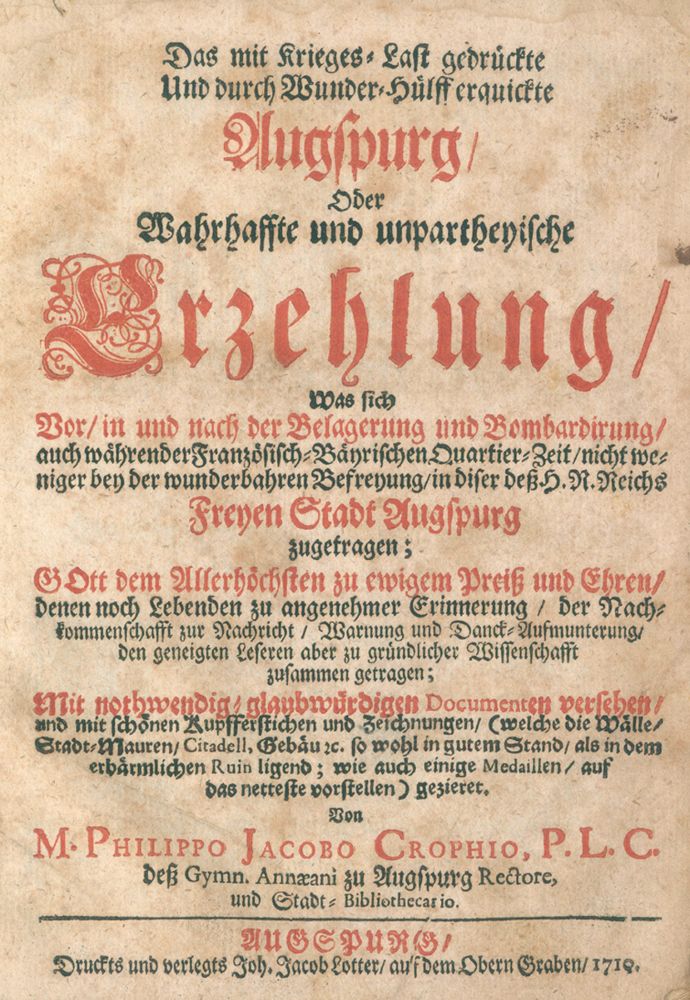 Das mit Krieges-Last gedrückte
Und durch Wunder-Hülff erquickte
Augspurg/
Oder
Wahrhaffte und unpartheyische
Erzehlung/
Was sich
Vor/ in und nach der Belagerung und Bombardirung/
auch währender Französisch-Bäyrischen Quartier-Zeit/ nicht we-
niger bey der wunderbahren Befreyung/ in diser deß H. R. Reichs
Freyen Stadt Augspurg
zugetragen;
GOtt dem Allerhöchsten zu ewigem Preiß und Ehren/
denen noch Lebenden zu angenehmer Erinnerung / der Nach-
kommenschafft zur Nachricht / Warnung und Danck-Aufmunterung/
den geneigten Leseren aber zu gründlicher Wissenschafft
zusammen getragen;
Mit nothwendig/ glaubwürdigen Documenten versehen/
und mit schönen Kupfferstichen und Zeichnungen/ (welche die Wälle/
Stadt-Mauren/ Citadell, Gebäu ꝛc. so wohl in gutem Stand/ als in dem
erbärmlichen Ruin ligend; wie auch einige Medaillen/ auf
das netteste vorstellen) gezieret.
Von
M. PHILIPPO JACOBO CROPHIO, P. L. C.
deß Gymn. Annæani zu Augspurg Rectore,
und Stadt-Bibliothecario.
AUGSPURG/
Druckts und verlegts Joh. Jacob Lotter/ auf dem Obern Graben/